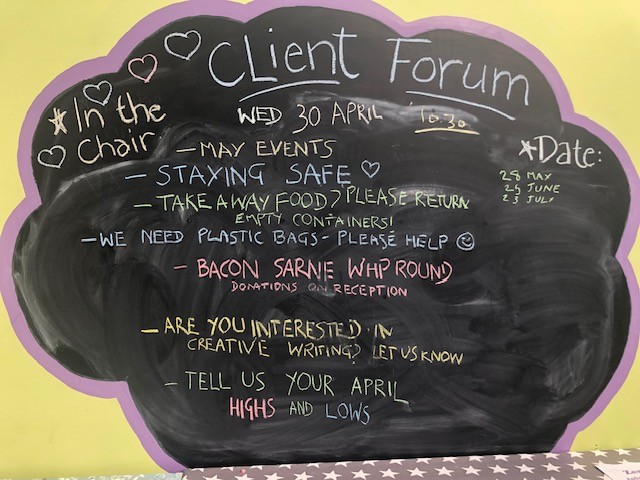 CLient Forum
*In the Chair
WED 30 APRIL 10.30
- MAY EVENTS
- STAYING SAFE ♡
- TAKE AWAY FOOD? PLEASE RETURN
EMPTY CONTAINERS!
- WE NEED PLASTIC BAGS - PLEASE HELP ☺
- BACON SARNIE WHP ROUND
DONATIONS ON RECEPTION
- ARE YOU INTERESTED IN
CREATIVE WRITING? LET US KNOW
- TELL US YOUR APRIL
HIGHS AND LOWS
*Date:
28 MAY
25 JUNE
23 JULY